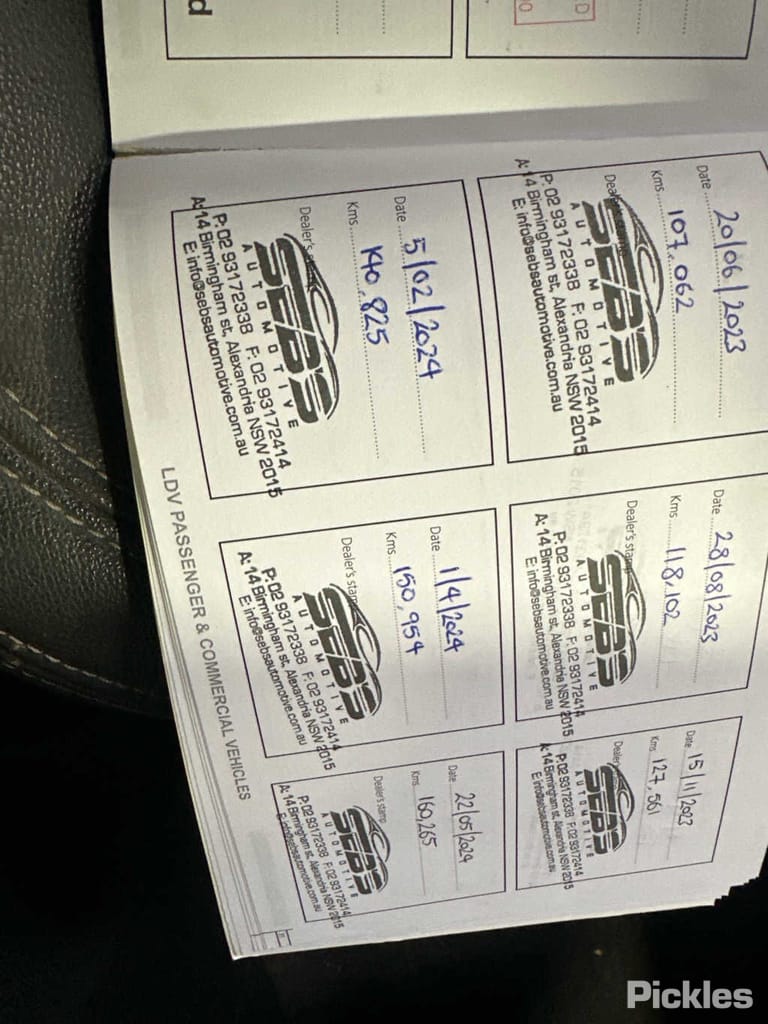 d
D
00
Date 20/06/2023
Kms 107,062
Dealer's stamp
SEB'S
AUTOMOTIVE
P: 02 93172338 F: 02 93172414
A: 14 Birmingham st, Alexandria NSW 2015
E: info@sebsautomotive.com.au
Date 28/08/2023
Kms 118,102
Dealer's stamp
SEB'S
AUTOMOTIVE
P: 02 93172338 F: 02 93172414
A: 14 Birmingham st, Alexandria NSW 2015
E: info@sebsautomotive.com.au
Date 15/11/2023
Kms 127,561
Dealer
SEB'S
AUTOMOTIVE
P: 02 93172338 F: 02 93172414
A: 14 Birmingham st, Alexandria NSW 2015
E: info@sebsautomotive.com.au
Date 5/02/2024
Kms 140,825
Dealer's
SEB'S
AUTOMOTIVE
P: 02 93172338 F: 02 93172414
A: 14 Birmingham st, Alexandria NSW 2015
E: info@sebsautomotive.com.au
Date 1/4/2024
Kms 150,954
Dealer's stamp
SEB'S
AUTOMOTIVE
P: 02 93172338 F: 02 93172414
A: 14 Birmingham st, Alexandria NSW 2015
E: info@sebsautomotive.com.au
Date 22/05/2024
Kms 160,265
Dealer's stamp
SEB'S
AUTOMOTIVE
P: 02 93172338 F: 02 93172414
A: 14 Birmingham st, Alexandria NSW 2015
E: info@sebsautomotive.com.au
LDV PASSENGER & COMMERCIAL VEHICLES
Pickles